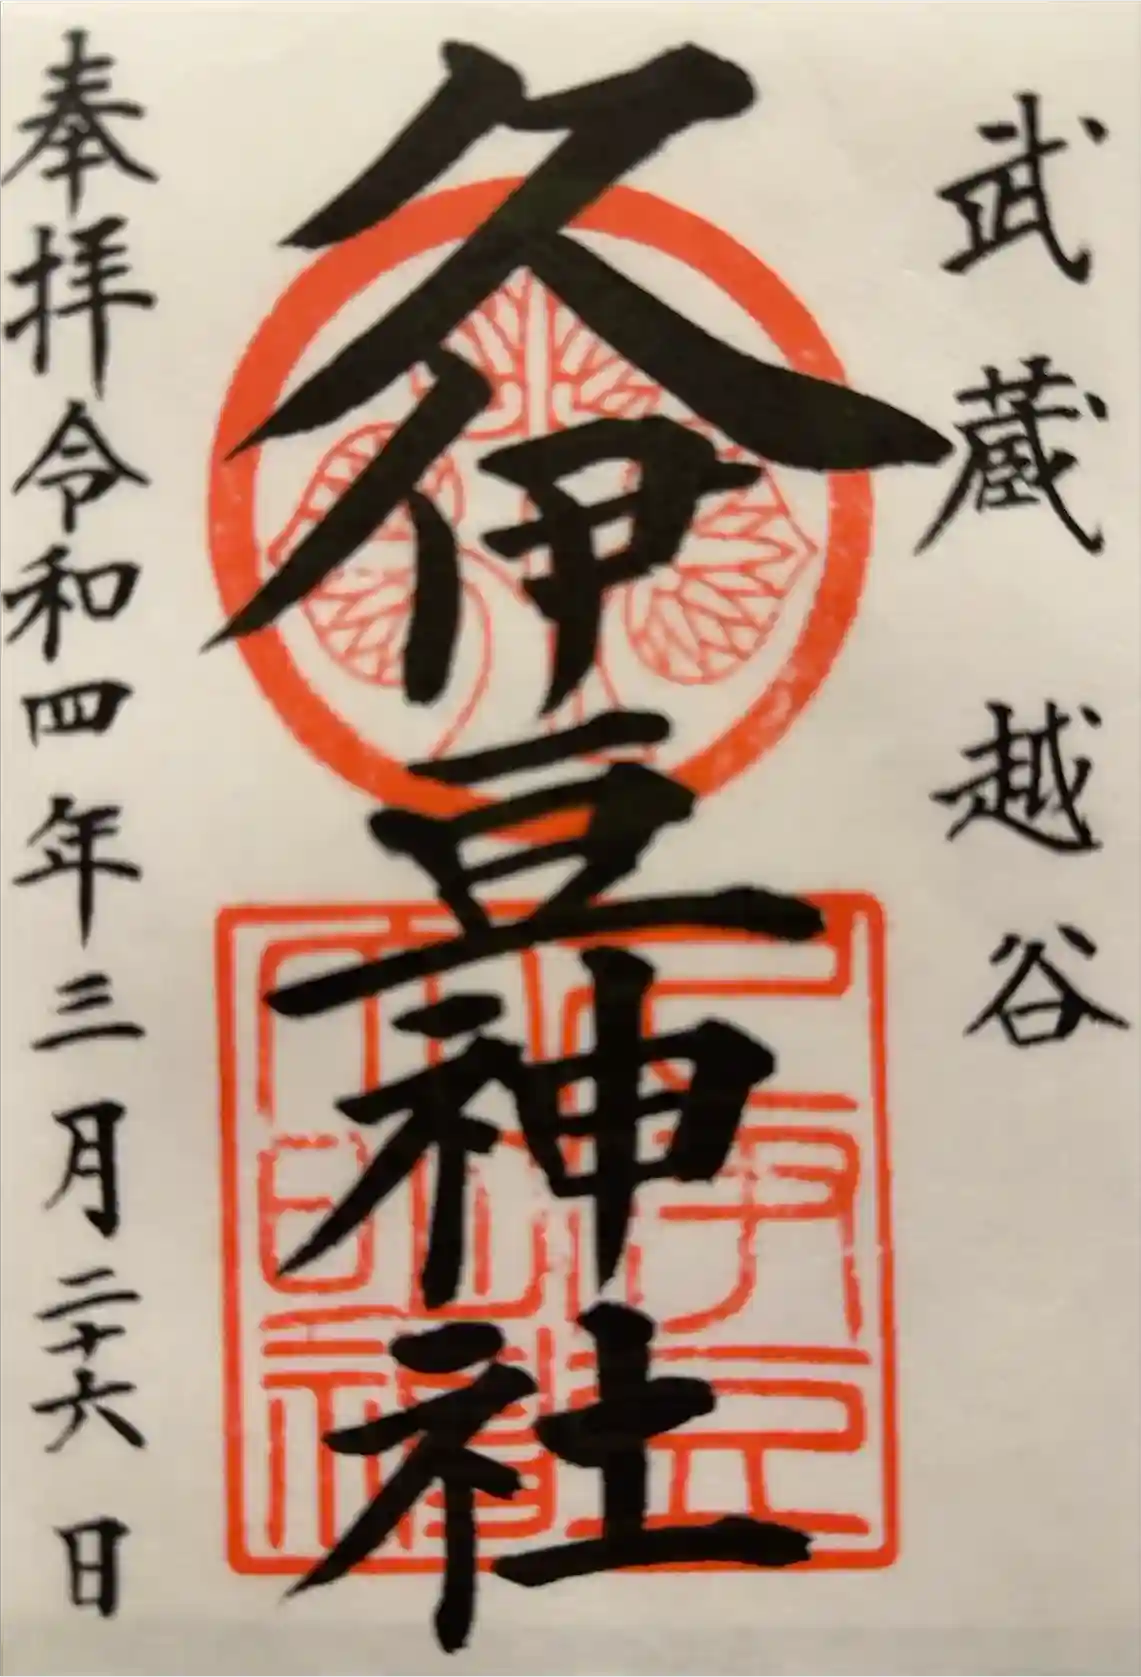 武蔵 越谷
久伊豆神社
奉拝 令和四年三月二十六日